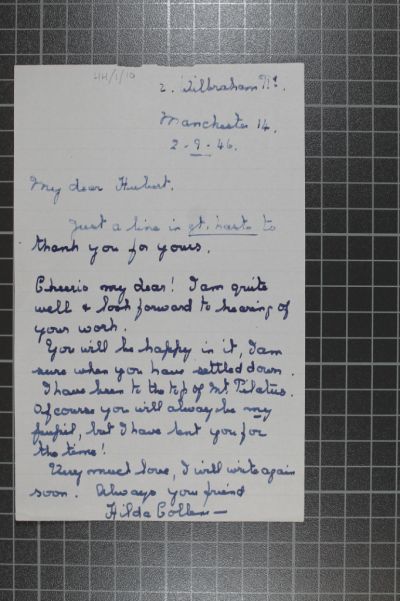 44/1/10
2. Wilbraham Rd.
Manchester 14.
2-9-46.
My dear Hubert.
Just a line in gt. haste to
thank you for yours.
Cheerio my dear! I am quite
well & look forward to hearing of
your work.
You will be happy in it, I am
sure when you have settled down.
I have been to the top of Mt. Pilatus.
Of course you will alway be my
pupil, but I have lent you for
the time!
Very much love, I will write again
soon. Always you friend
Hilda Collens —